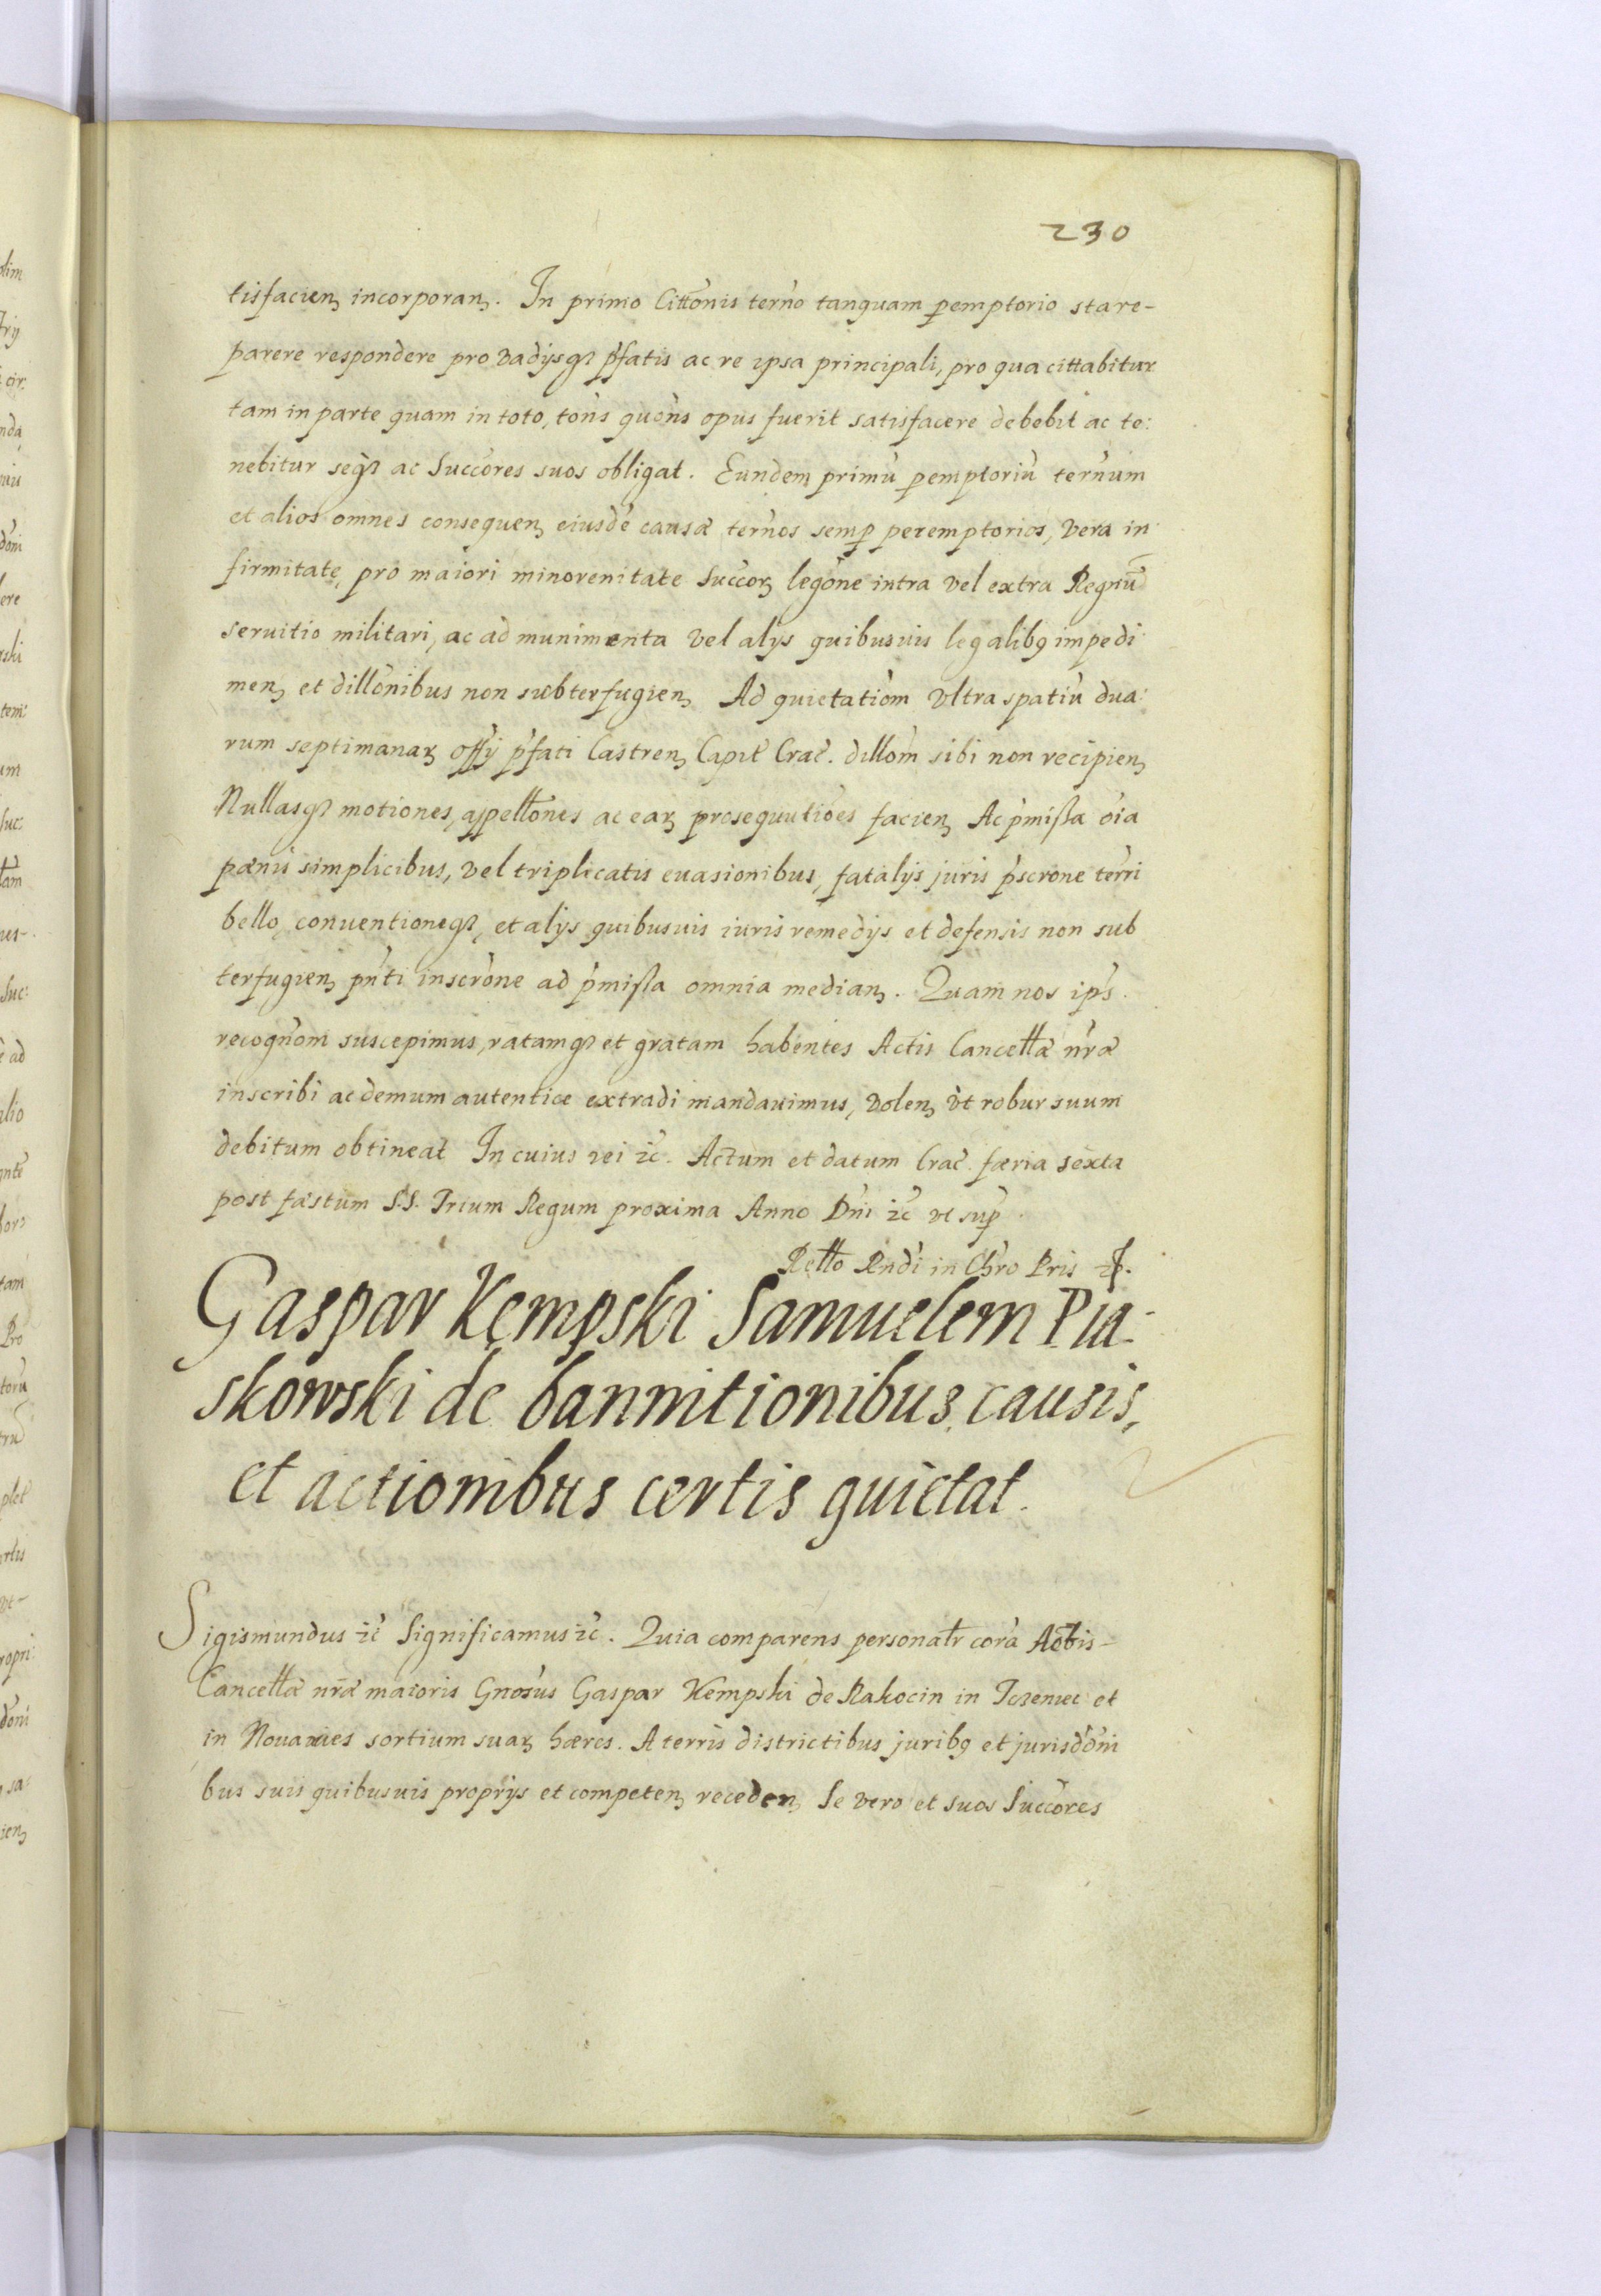 230
tisfacien incorporan. In primo Cittonis terno tanquam peremptorio stare-
parere respondere pro vadijsq pfatis ac re ipsa principali, pro qua cittabitur
tam in parte quam in toto, tons quons opus fuerit satisfacere debebit ac te:
nebitur seq ac Succores suos obligat. Eundem primu peremptoriu ternum
et alios omnes consequen eiusde causæ ternos semp peremptorios, vera in
firmitate, pro maiori minorenitate Succor legone intra vel extra Regnu
seruitio militari, ac ad munimenta vel alys quibusuis legalibq impedi
men et dillonibus non subterfugien Ad quietatiom vltra spatiu dua:
rum septimanar offy pfati Castren Capit Crac. dillom sibi non recipien
Nullasq motiones, appellones ac ear prosequutioes facien Ac pmissa oia
pænis simplicibus, vel triplicatis euasionibus, fatalijs juris pscrone terri
bello, conuentioneq, et alys quibusuis iuris remedijs et defensis non sub
terfugien pnti inscrone ad pmissa omnia median. Quam nos ips
recognom suscepimus, ratamq et gratam habentes Actis Cancellæ nræ
inscribi ac demum autentice extradi mandauimus, volen vt robur suum
debitum obtineat In cuius rei zc. Actum et datum Crac. færia sexta
post fæstum S.S. Trium Regum proxima Anno Dni zc vt sup.
Rello Rndi in Chro Pris
Gaspar Kempski Samuelem Pia-
skowski de bannitionibus causis,
et actionibus certis quietat.
Sigismundus zc Significamus zc. Quia comparens personatr cora Actis-
Cancellæ nræ maioris Gnosus Gaspar Kempski de Rakocin in et
in Nouawies sortium suar hæres. A terris districtibus juribq et jurisdoni
bus suis quibusuis proprijs et competen receden Se vero et suos Succores